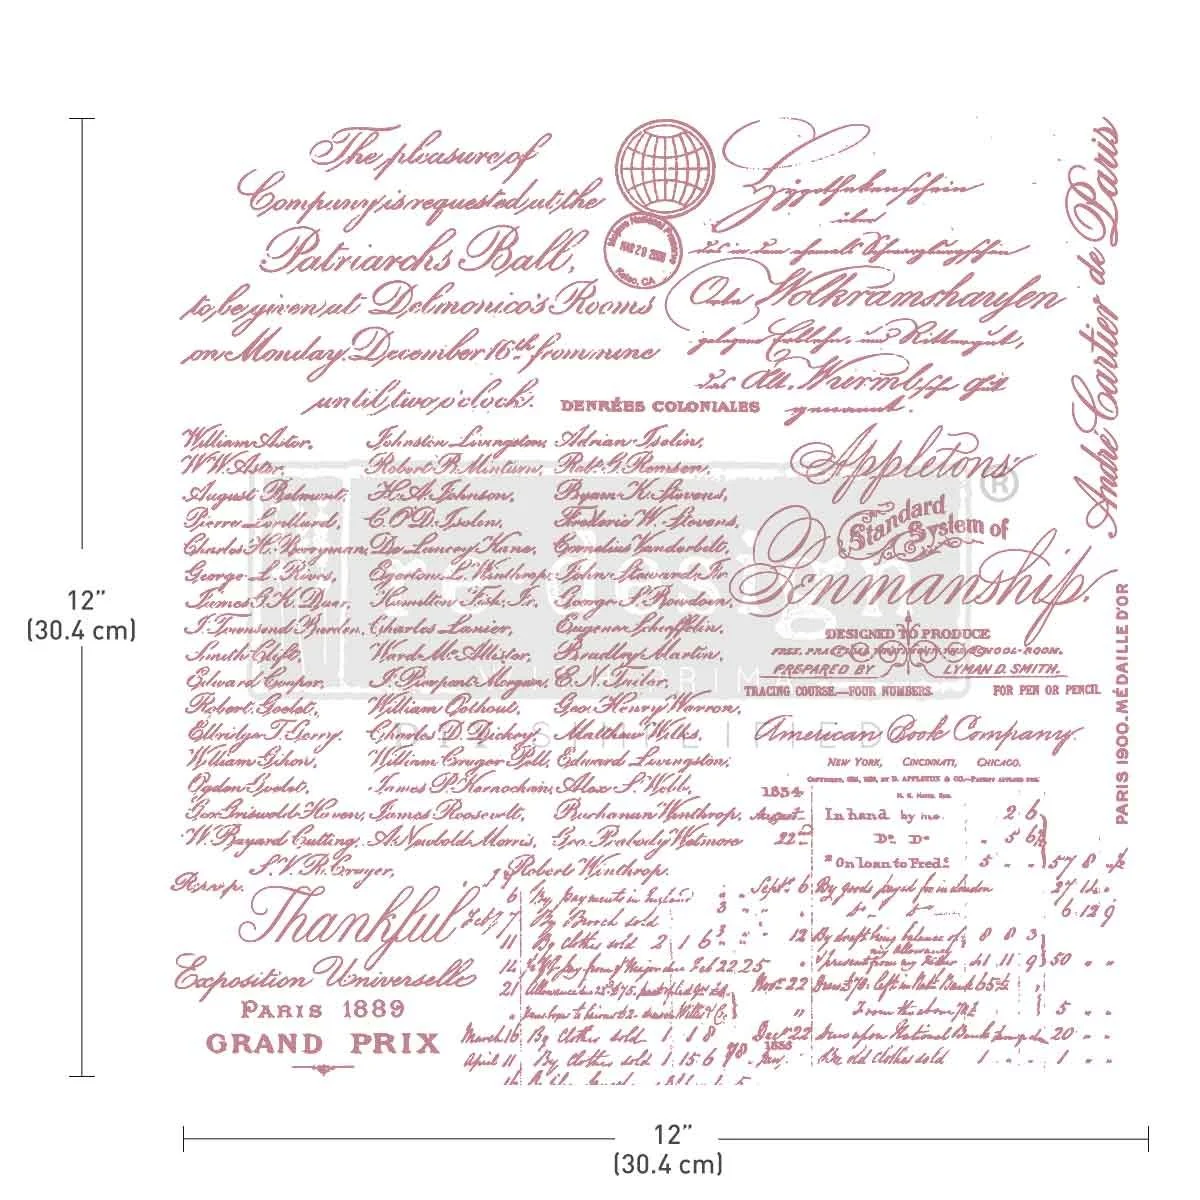 The pleasure of
Company is requested at the
Patriarchs Ball,
to be given at Delmonico's Rooms
on Monday, December 16th from nine
until two o'clock.
MAR 28 2008
Relso, CA
Hypothekenschein
über
das in dem ehemals Schwarzburgschen
Wolkramshausen
gelegene Erblehn- und Rittergut,
das Alt. Wurmb.sche Gut
genannt.
André Cartier de Paris
DENRÉES COLONIALES
William Astor, Johnston Livingston, Adrian Iselin,
W.W. Astor, Robert B. Minturn, Robt. G. Remsen,
August Belmont, H.A. Johnson, Byam K. Stevens,
Pierre Lorillard, C. O'D. Iselin, Frederic W. Stevens,
Charles H. Berryman, De Lancey Kane, Cornelius Vanderbilt,
George L. Rives, Egerton L. Winthrop, John Steward, Jr.
James G.K. Duer, Hamilton Fish, Jr. George S. Bowdoin,
J. Townsend Burden, Charles Lanier, Eugene Schieffelin,
Smith Clift, Ward Mc.Allister, Bradley Martin,
Edward Cooper, J. Pierpont Morgan, E.N. Tailer,
Robert Goelet, William Oothout, Geo. Henry Warren,
Elbridge T. Gerry, Charles D. Dickey, Matthew Wilks,
William Gihon, William Cruger Pell, Edward Livingston,
Ogden Goelet, James P. Kernochan, Alex S. Webb,
Geo. Griswold Haven, James Roosevelt, Buchanan Winthrop,
W. Bayard Cutting, A. Newbold Morris, Geo. Peabody Wetmore
S.V.R. Cruger, Robert Winthrop.
R.s.v.p.
Appletons'
Standard
System of
Penmanship.
DESIGNED TO PRODUCE
PREPARED BY LYMAN D. SMITH.
TRACING COURSE.—FOUR NUMBERS. FOR PEN OR PENCIL.
American Book Company.
NEW YORK, CINCINNATI, CHICAGO.
PARIS 1900.MÉDAILLE D'OR
re·design
®
WITH PRIMA
DIY SIMPLIFIED
Thankful
Exposition Universelle
PARIS 1889
GRAND PRIX
1854
August In hand by me. 2 6
22nd Do. Do. 5 6½
" On loan to Fred. 5 " " 57 8
Sept. 6 By goods payed for in London 27 14 "
6 12 9
12 By draft being balance of 8 8 3
my allowance
" present from my Father 41 11 9 50 " "
Novr. 22
5 " "
Decr. 22 20 " "
1855
Jany. By old clothes sold 1 " " 1 " "
6 By payments in England
Feby. 7 By Brooch sold 3
11 By Clothes sold 2 1 6
14
21
March 16 By Clothes sold 1 1 8
April 11 By Clothes sold 1 15 6
12"
(30.4 cm)
12"
(30.4 cm)